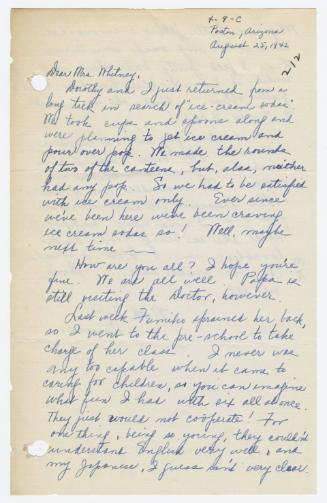 4-8-C
Poston, Arizona
August 25, 1942
212
Dear Mrs. Whitney,
Dorothy and I just returned from a
long trek in search of "ice-cream sodas."
We took cups and spoons along and
were planning to get ice cream and
pour over pop. We made the rounds
of two of the canteens, but, alas, neither
had any pop. So we had to be satisfied
with ice cream only. Ever since
we've been here we've been craving
ice cream sodas so! Well, maybe
next time
How are you all? I hope you're
fine. We are all well. Papa is
still visiting the doctor, however.
Last week Fumiko sprained her back,
so I went to the pre-school to take
charge of her class. I never was
any too capable when it came to
caring for children, so you can imagine
what fun I had with six all at once.
They just would not cooperate! For
one thing, being so young, they couldn't
understand English very well, and
my Japanese, I guess, isn't very clear.